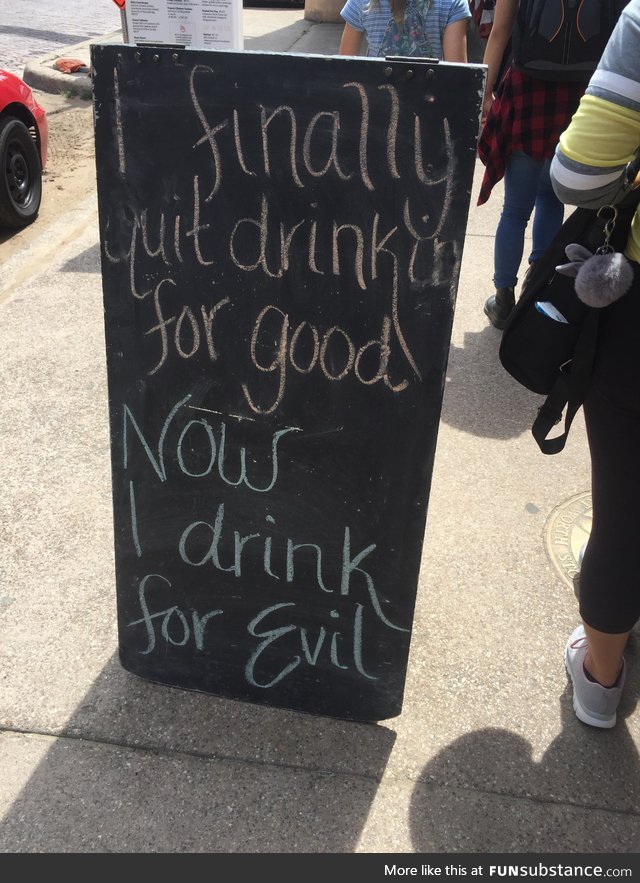 I finally
quit drinkin
for good
Now
I drink
for Evil
More like this at FUNsubstance.com